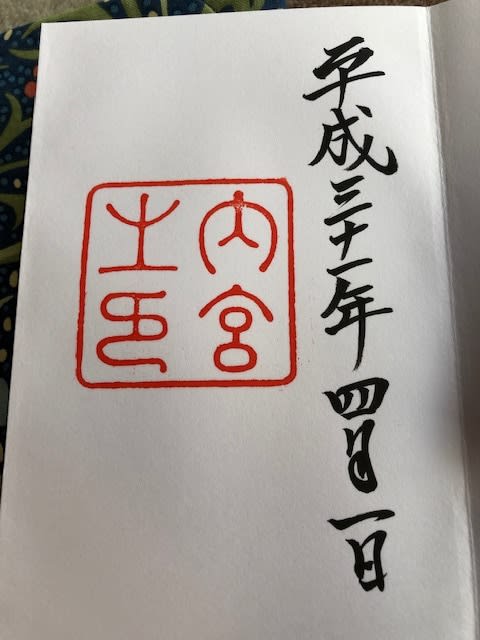 平成三十一年四月一日
内宮
之印